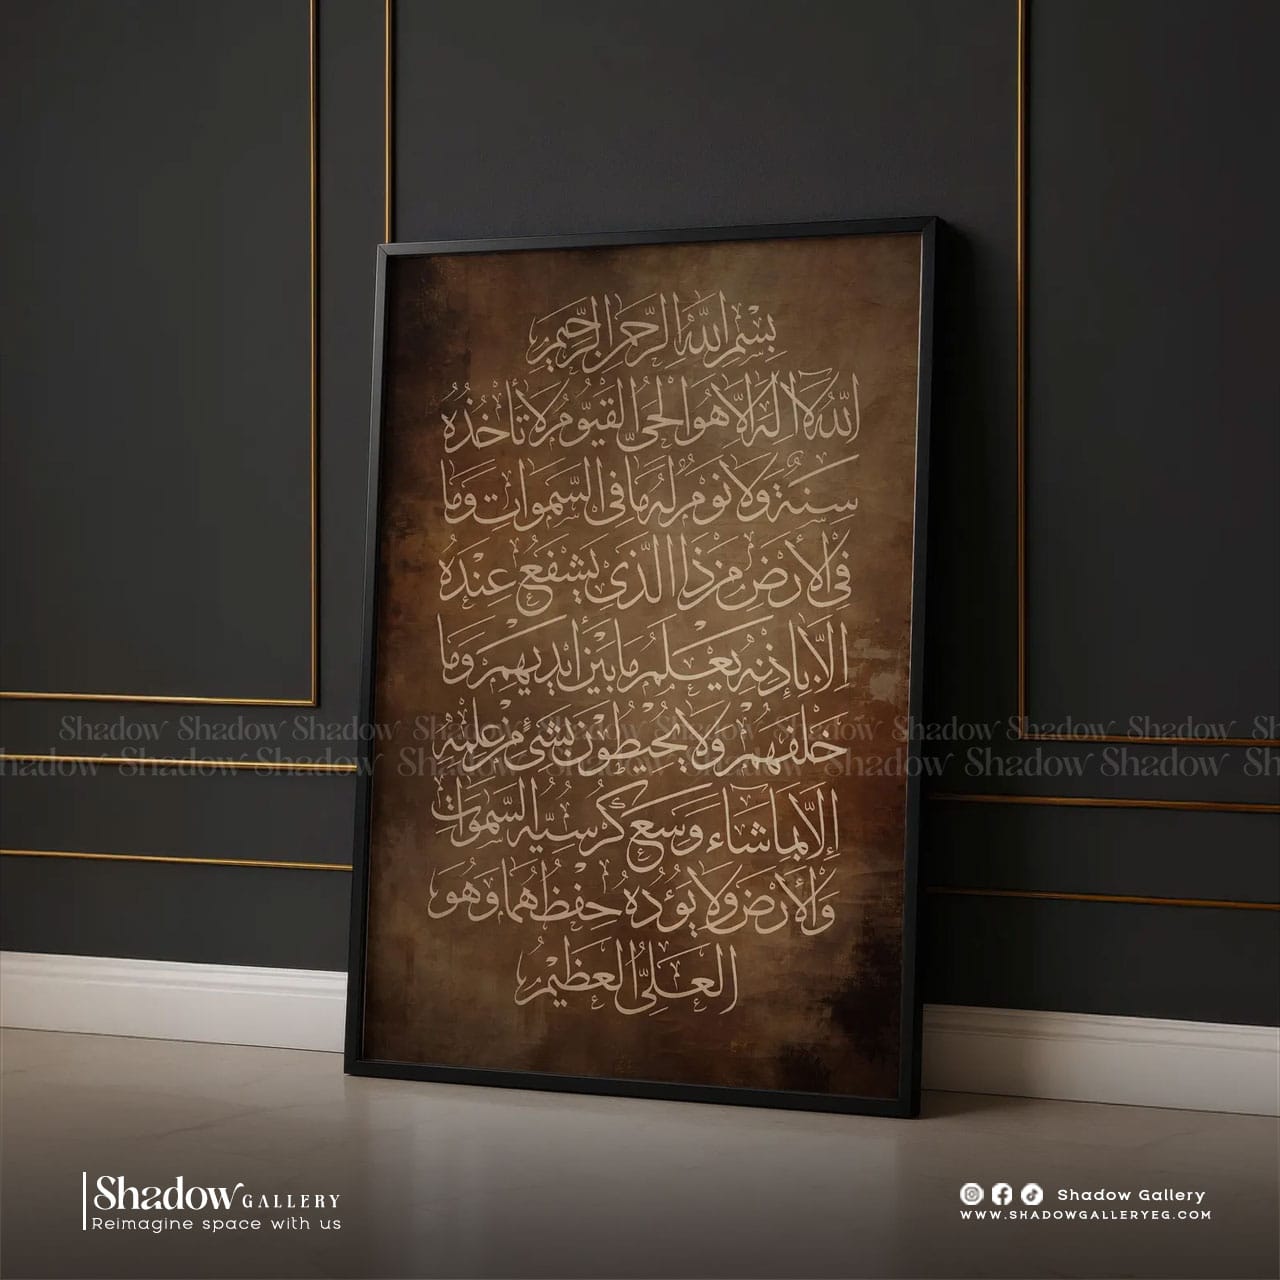 بِسْمِ اللَّهِ الرَّحْمَنِ الرَّحِيمِ
اللَّهُ لَا إِلَهَ إِلَّا هُوَ الْحَيُّ الْقَيُّومُ لَا تَأْخُذُهُ
سِنَةٌ وَلَا نَوْمٌ لَهُ مَا فِي السَّمَوَاتِ وَمَا
فِي الْأَرْضِ مَنْ ذَا الَّذِي يَشْفَعُ عِنْدَهُ
إِلَّا بِإِذْنِهِ يَعْلَمُ مَا بَيْنَ أَيْدِيهِمْ وَمَا
خَلْفَهُمْ وَلَا يُحِيطُونَ بِشَيْءٍ مِنْ عِلْمِهِ
إِلَّا بِمَا شَاءَ وَسِعَ كُرْسِيُّهُ السَّمَوَاتِ
وَالْأَرْضَ وَلَا يَؤُدُهُ حِفْظُهُمَا وَهُوَ
الْعَلِيُّ الْعَظِيمُ
Shadow Shadow Shadow Shadow Shadow Shadow Shadow Shadow Shadow Shadow
Shadow Shadow Shadow Shadow Shadow Shadow Shadow Shadow Shadow Shadow
Shadow GALLERY
Reimagine space with us
Shadow Gallery
WWW.SHADOWGALLERYEG.COM